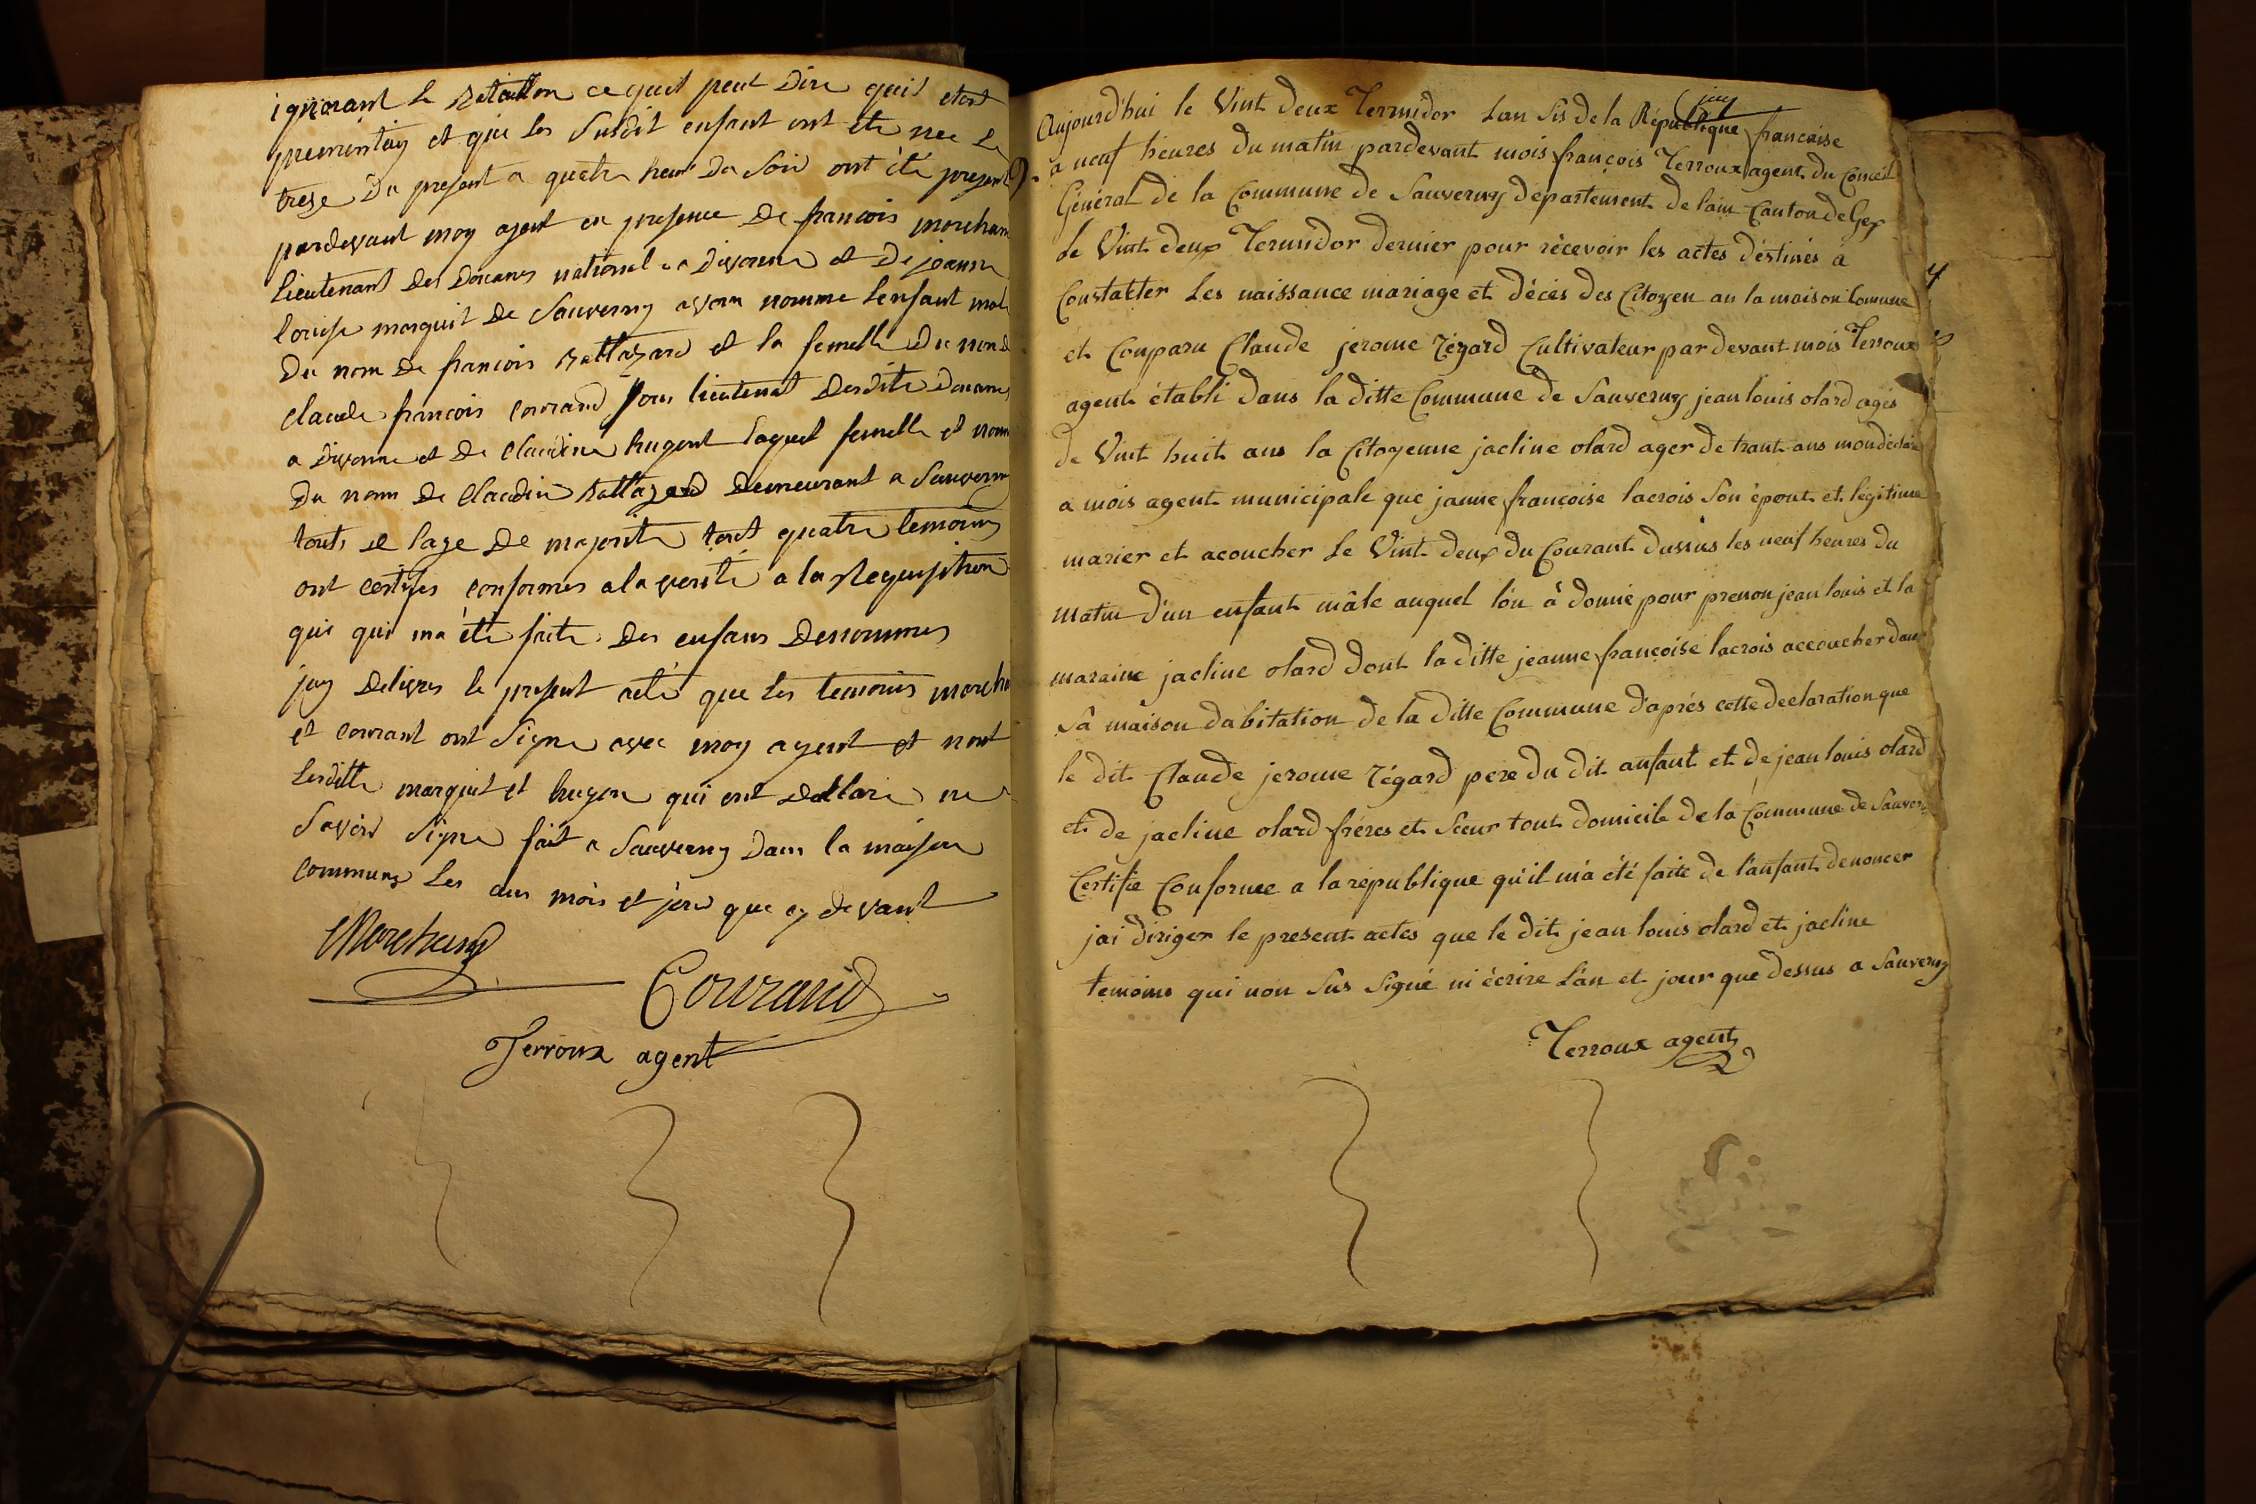 ignorant le Bataillon ce quil peut dire quil etoit
et que les Susdit enfant ont ete nee le
treze du present a quatre heur du Soir ont été present
pardevant moy agent en presence de francois morchan
lieutenant des Doüanes national a divonne et de jeanne
louise marquit de Sauverny avon nomme lenfant mal
du nom de francois Baltazard et la femelle du nom d
claude francois courand sous lieutenat desdite Douane
a divonne et de claudine hugont laquel femelle et nom
du nom de claudin Baltazard demeurant a Sauverny
touts de lage de majorite touts quatre temoins
ont certifies conformes a la verité a la Requisition
qui qui ma été faite des enfans denommes
jay delivres le present acte que les temoins morcha
et courant ont Signe avec moy agent et nont
lesditte marquit et hugon qui ont dellare ne
Savoir Signe fait a Sauverny dans la maison
commune les ans mois et jour que cy devant
Morchand
Courand
Terroux agent
Aujourd'hui le Vint deux Termidor Lan Sis de la République francaise
à neuf heures du matin pardevant mois françois Terroux agent du Conceil
Général de la Commune de Sauverny département de lain Canton de Gex
le Vint deux Termidor dernier pour récevoir les actes déstinés a
Constatter Les naissance mariage et décés des Citoyen an la maison Comune
et Conparu Claude jerome Régard Cultivateur par devant mois Terroux
agent établi dans la ditte Commune de Sauverny jean louis olard ages
de Vint huit ans la Citoyenne jacline olard ager de trant ans mondéclare
a mois agent municipale que janne françoise lacrois Son épout et légitime
marier et acoucher le Vint deux du Courant dussus les neuf heures du
matin d'un enfant mâle auquel lón à donné pour prenon jean louis et la
maraine jacline olard dont la ditte jeanne françoise lacrois accoucher dans
Sâ maison dabitation de la ditte Commune d'aprés cette declaration que
le dit Claude jerome Régard pere du dit anfant et de jean louis olard
et de jacline olard fréres et Sœur tout domicile de la Commune de Sauverny
Certifie Conforme a la republique qu'il m'a été faite de l'anfant denoncer
jai diriger le present actes que le dit jean louis olard et jacline
temoins qui non Sus Signé ni écrire Lán et jour que dessus a Sauverny
Terroux agent